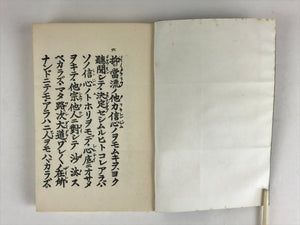 抑當流ノ他力信心ノヲモムキヲヨク
聽聞シテ決定セシムルヒトコレアラバ
ソノ信心ノトホリヲモテ心底ニオサメ
ヲキテ他宗他人ニ對シテ沙汰ス
ベカラズマタ路次大道ワレ〳〵ノ在所
ナンドニテモアラハニ人ヲモハバカラズ